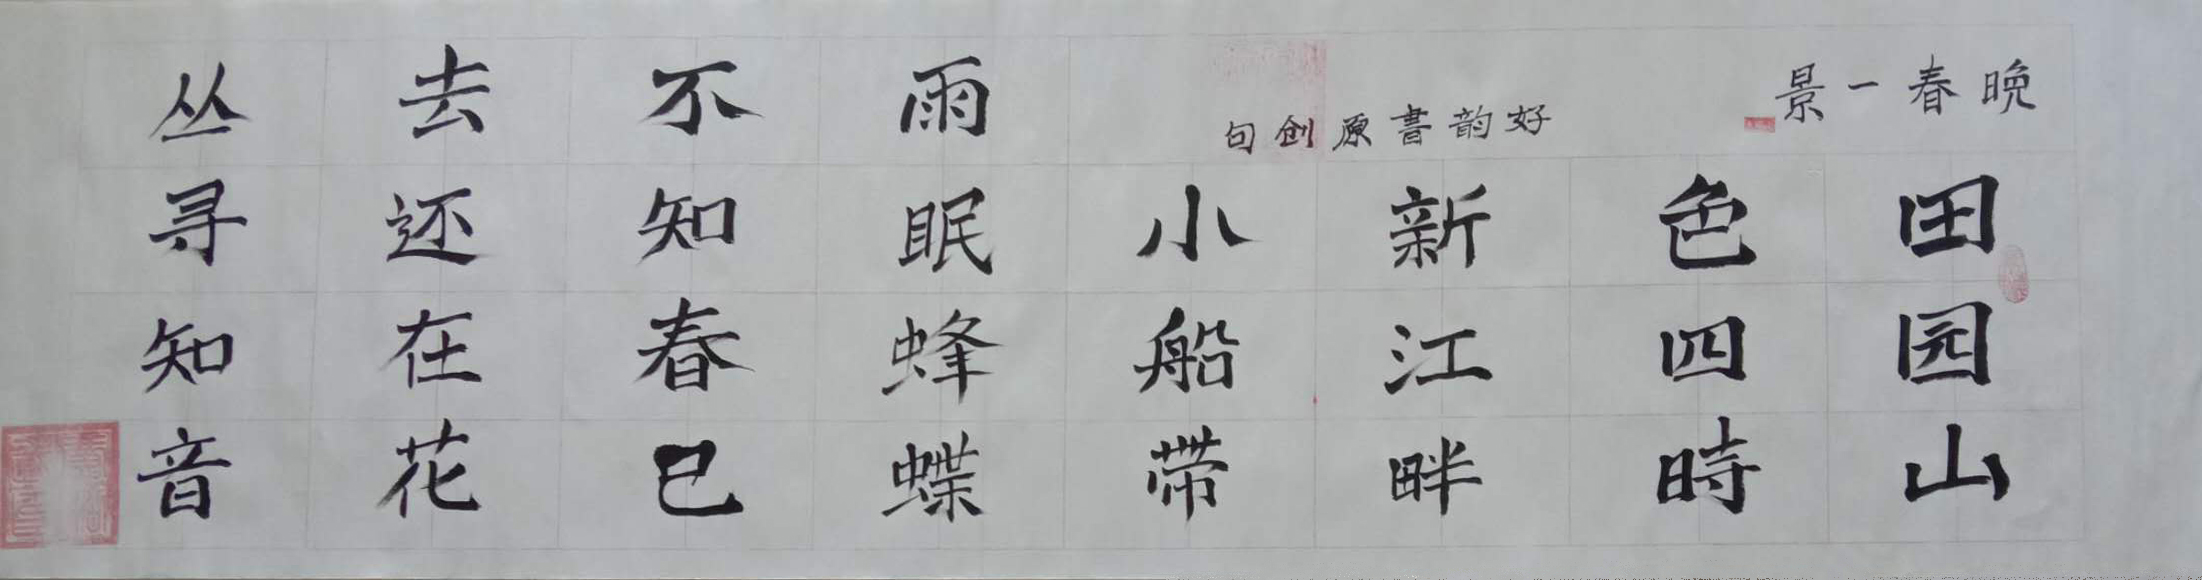 晚春一景
好韵書原创句
田园山
色四時
新江畔
小船带
雨眠蜂蝶
不知春已
去还在花
丛寻知音